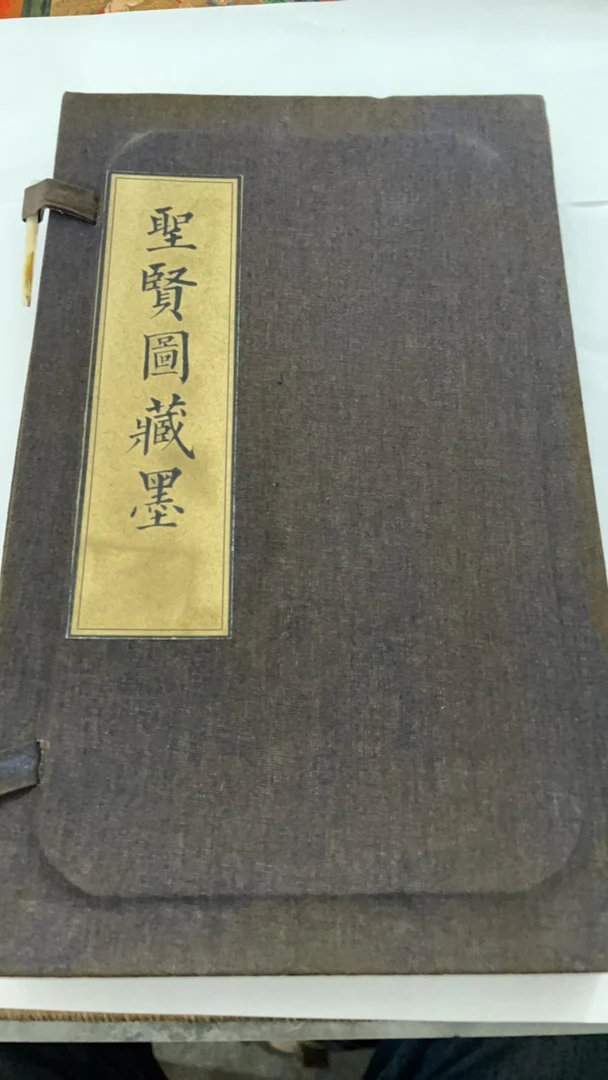 聖賢圖藏墨